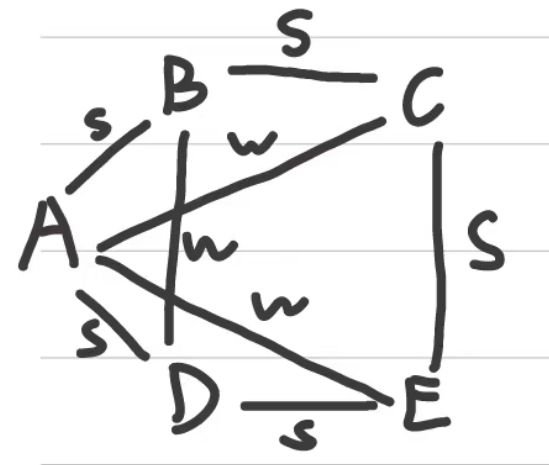 S
B C
s
w
A
w S
w
s
D E
s